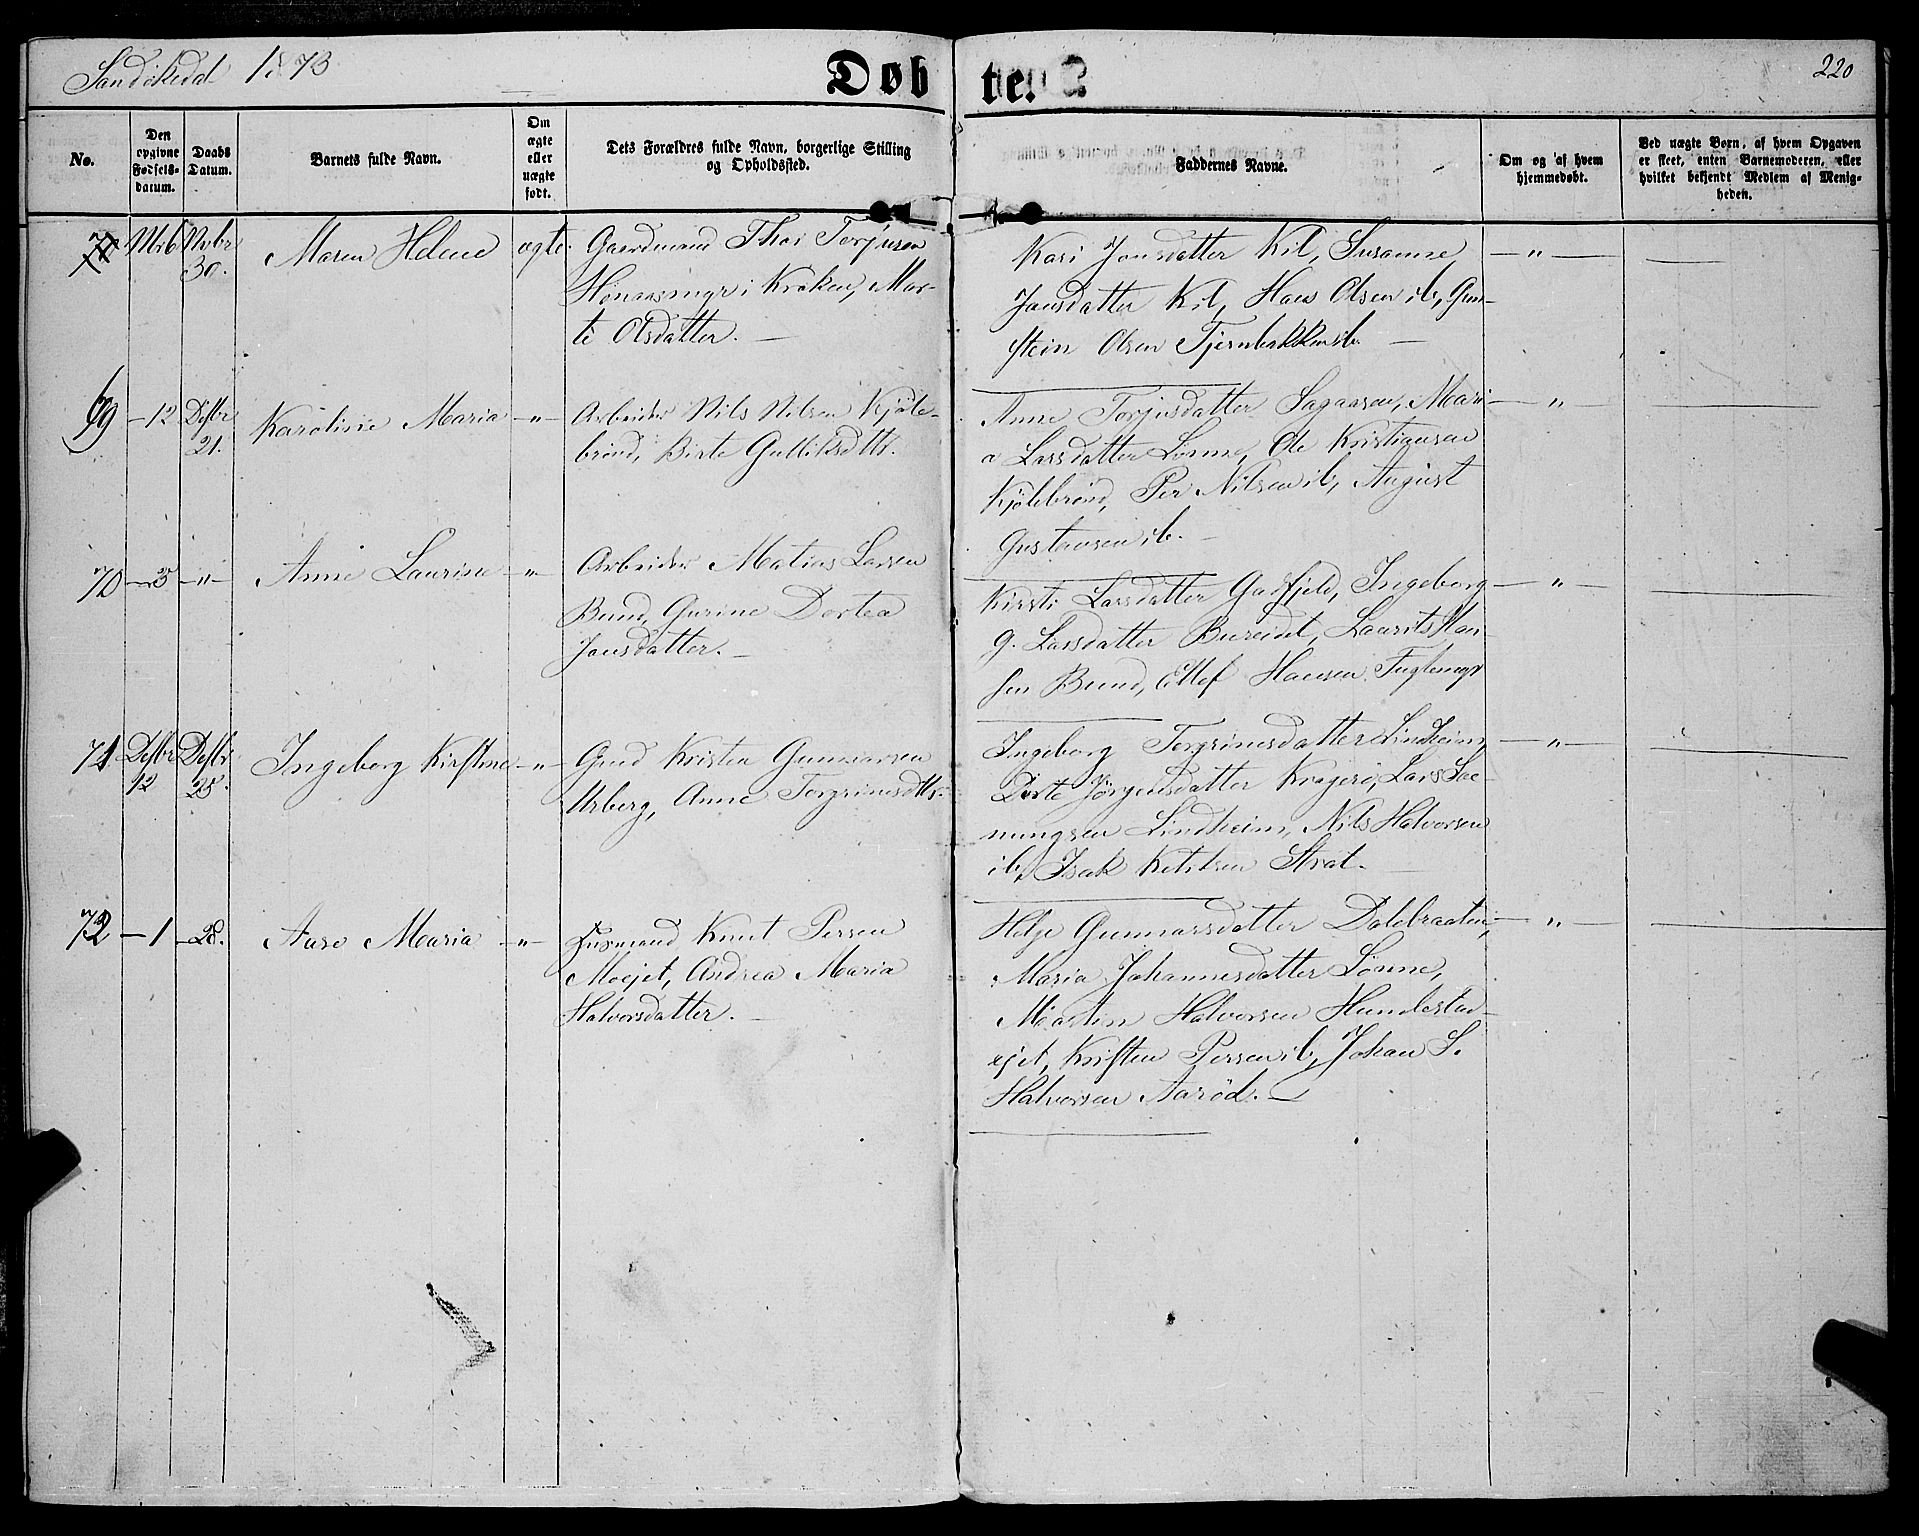 Sandökedal 1873
Døbte.
220
No.
Den opgivne Fødsels-datum.
Daabs Datum.
Barnets fulde Navn.
Om ægte eller uægte født.
Dets Forældres fulde Navn, borgerlige Stilling
og Opholdssted.
Faddernes Navne.
Om og af hvem
hjemmedøbt.
Ved uægte Børn, af hvem Opgaven
er skeet, enten Barnemoderen, eller
hvilket bekjendt Medlem af Menig-
heden.
Novbr
30.
Maren Helene
ægte
Gaardmand Thor Torjusen
i Kroken, Mar-
te Olsdatter.
Kari Jonsdatter Kil, Susanne
Jansdatter Kil, Hans Olsen ib, Gun-
stein Olsen Tjernbakken ib.
— " —
69
- 12
Dcbr
21.
Karoline Maria
- " -
Arbeider Nils Nilsen Kjöle-
brönd, Birte Gulliksdtr.
Anne Torjusdatter Sagaasen, Mari-
a Larsdatter Lönne, Ole Kristiansen
Kjölebrönd, Per Nilsen ib, August
Gustavsen ib.
— " —
70
- " -
Anne Laurine
- " -
Arbeider Matias Larsen
Bund, Gurine Dortea
Jansdatter.
Kirsti Larsdatter Gasfjeld, Ingeborg
G. Larsdatter Bureidet, Laurits Han-
sen Bund, Ellef Hansen Fuglemyr
— " —
71
Desbr
12
Desbr
25.
Ingeborg Kirstine
- " -
Gmd Kristen Gunnarsen
Urberg, Anne Torgrimsdtr.
Ingeborg Torgrimsdatter Lindheim,
Dorte Jörgensdatter Kragerö, Lars Sae-
mungsen Lindheim, Nils Halvorsen
ib, Isak Ketilsen Strat.
— " —
72
- 1
- 28.
Aase Maria
- " -
Husmand Knut Persen
Moejet, Andrea Maria
Halvorsdatter.
Helje Gunnarsdatter Dalebraaten,
Maria Johannesdatter Lönne,
Martin Halvorsen Hundestad-
ejet, Kristen Persen ib, Johan L.
Halvorsen Aaröd.
— " —